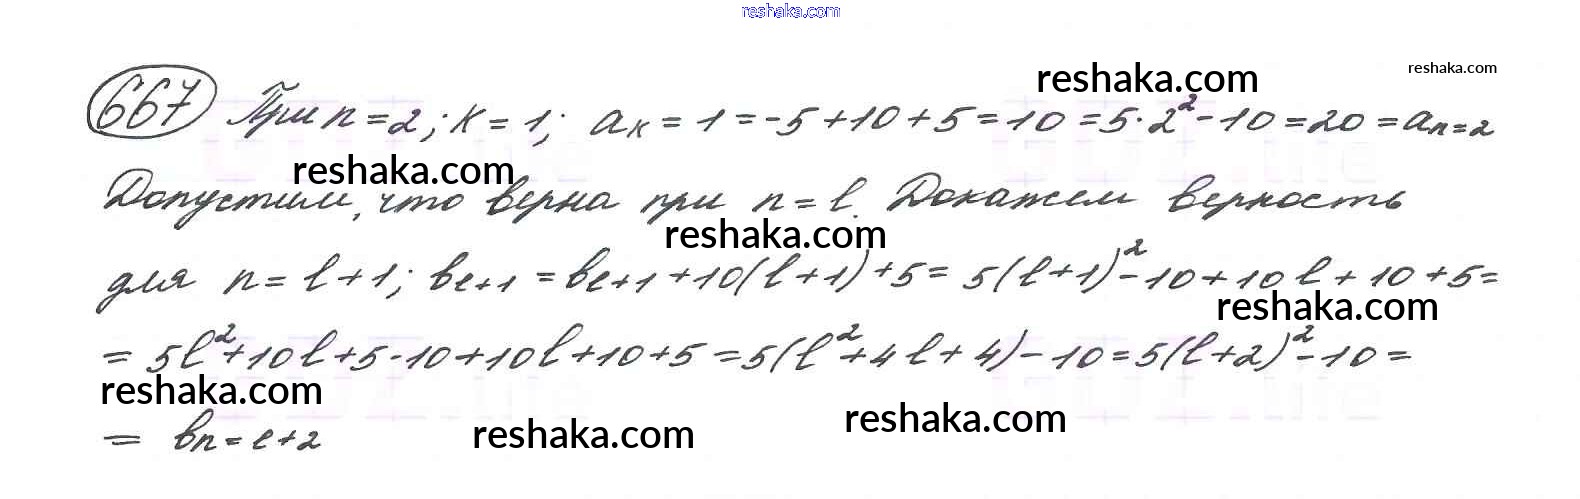 reshaka.com
reshaka.com
reshaka.com
667 При n = 2; k = 1; a_k = 1 = -5 + 10 + 5 = 10 = 5 · 2² - 10 = 20 = a_n=2
reshaka.com
Допустим, что верна при n = l. Докажем верность
reshaka.com
для n = l + 1; b_l+1 = b_l+1 + 10(l + 1) + 5 = 5(l + 1)² - 10 + 10l + 10 + 5 =
reshaka.com
= 5l² + 10l + 5 - 10 + 10l + 10 + 5 = 5(l² + 4l + 4) - 10 = 5(l + 2)² - 10 =
reshaka.com
reshaka.com
= b_n = l + 2
reshaka.com